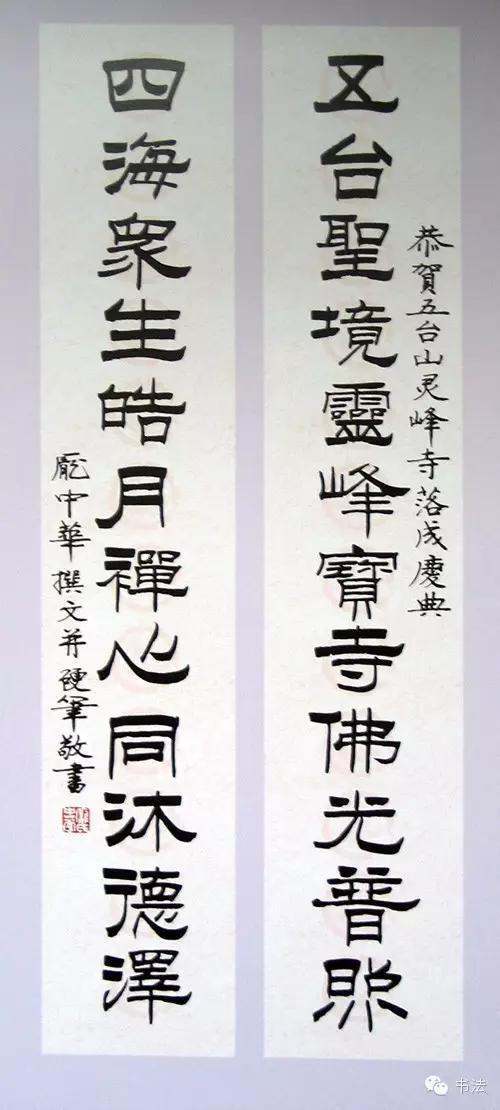 恭賀五台山灵峰寺落成慶典
五台聖境靈峰寶寺佛光普照
四海衆生皓月禪心同沐德澤
龐中華撰文并硬筆敬書
书法